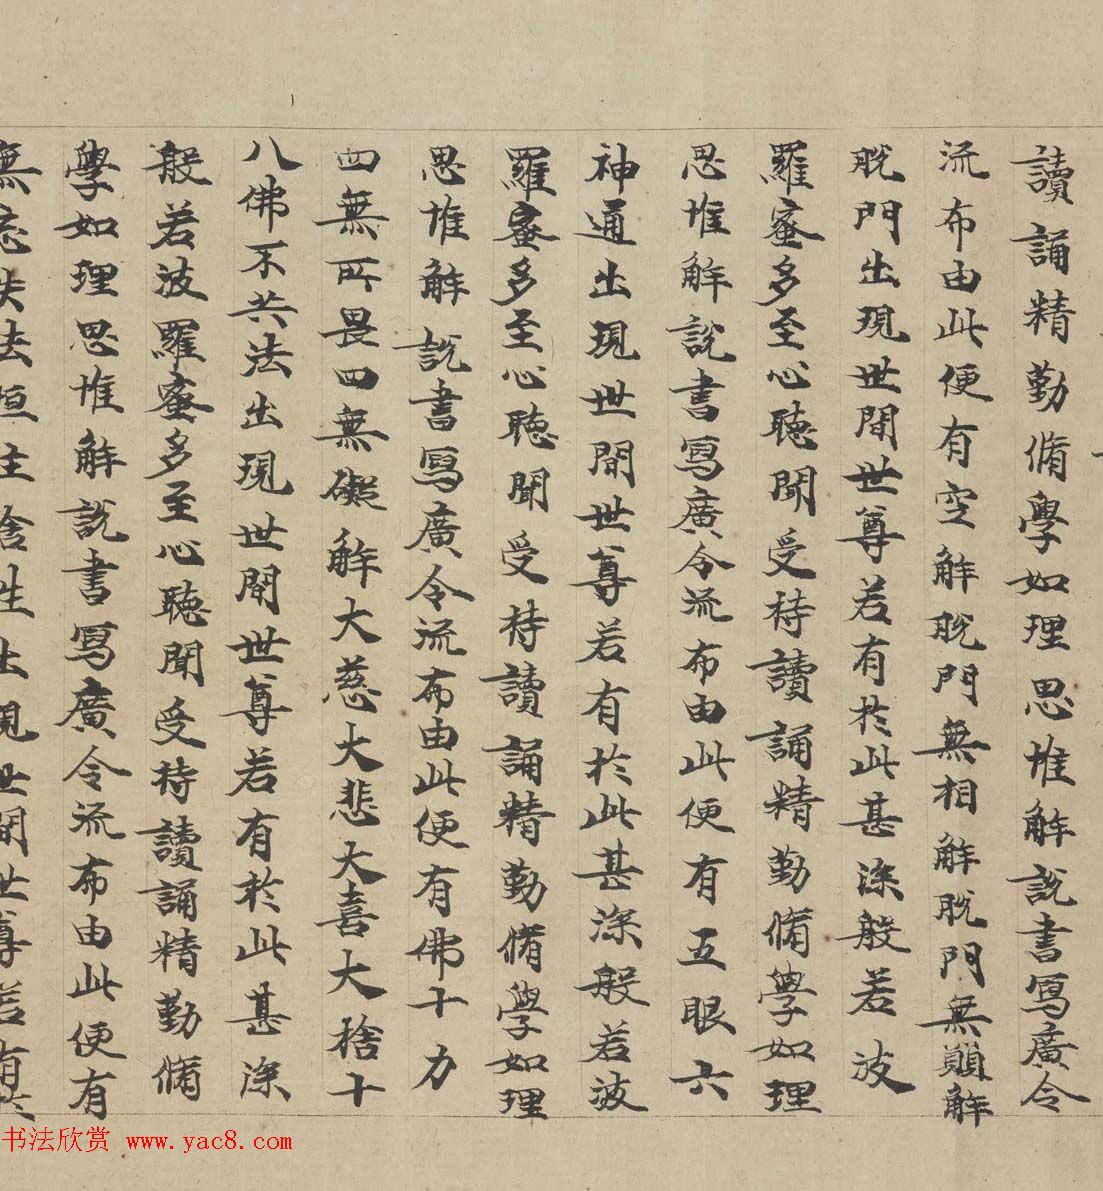 讀誦精勤脩學如理思惟解說書寫廣令
流布由此便有空解脫門無相解脫門無願解
脫門出現世間世尊若有於此甚深般若波
羅蜜多至心聽聞受持讀誦精勤脩學如理
思惟解說書寫廣令流布由此便有五眼六
神通出現世間世尊若有於此甚深般若波
羅蜜多至心聽聞受持讀誦精勤脩學如理
思惟解說書寫廣令流布由此便有佛十力
四無所畏四無礙解大慈大悲大喜大捨十
八佛不共法出現世間世尊若有於此甚深
般若波羅蜜多至心聽聞受持讀誦精勤脩
學如理思惟解說書寫廣令流布由此便有
無忘失法恒住捨性出現世間世尊若有
书法欣赏 www.yac8.com